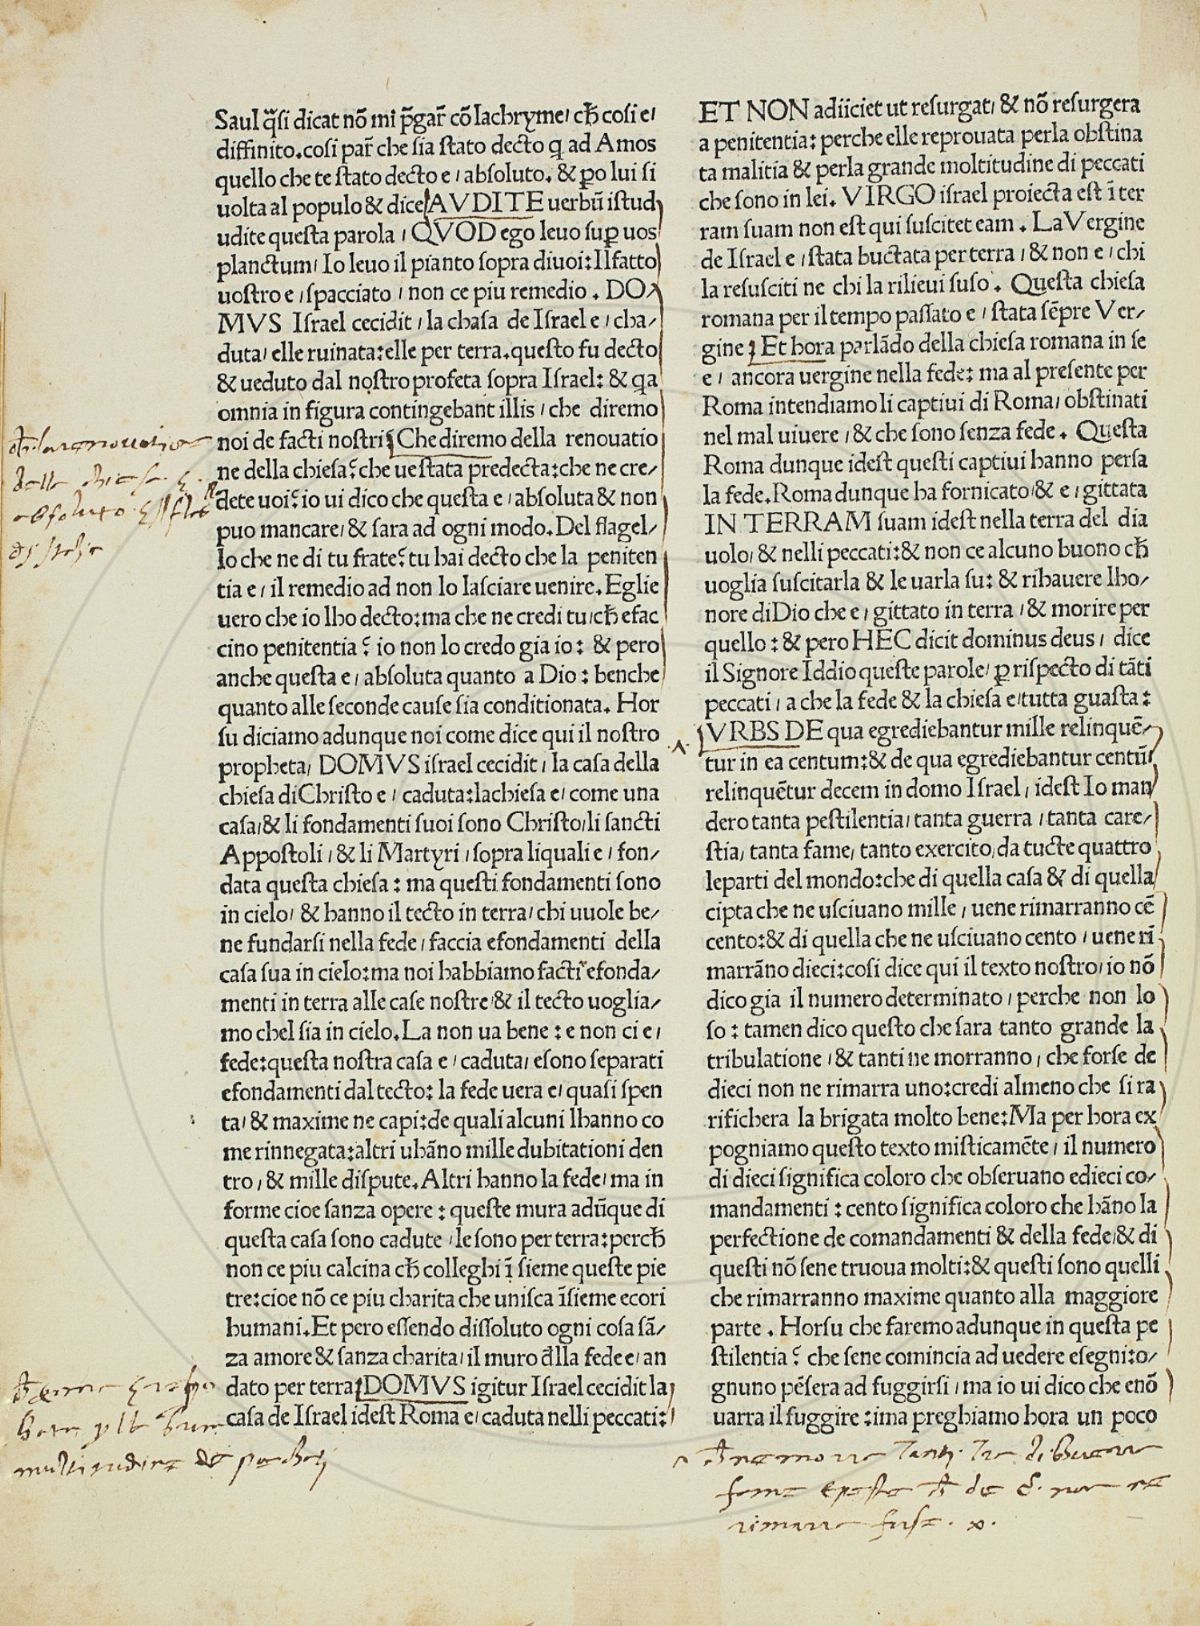 Saul q̃si dicat nõ mi p̃gar̃ cõ lachryme, cħ cosi e,
diffinito.cosi par̃ che sia stato decto q̱ ad Amos
quello che te stato decto e, absoluto. & ꝑo lui si
uolta al populo & dice AVDITE uerbũ istud
udite questa parola, QVOD ego leuo suꝑ uos
planctum, Io leuo il pianto sopra diuoi: Il fatto
uostro e, spacciato, non ce piu remedio. DO
MVS Israel cecidit, la chasa de Israel e, cha/
duta, elle ruinata:elle per terra.questo fu decto
& ueduto dal nostro profeta sopra Israel: & qa
omnia in figura contingebant illis, che diremo
noi de facti nostri Che diremo della renouatio
ne della chiesa? che uestata predecta:che ne cre/
dete uoi? io ui dico che questa e, absoluta & non
puo mancare, & sara ad ogni modo. Del flagel/
lo che ne di tu frate? tu hai decto che la peniten
tia e, il remedio ad non lo lasciare uenire. Eglie
uero che io lho decto:ma che ne credi tu, cħ efac
cino penitentia? io non lo credo gia io: & pero
anche questa e, absoluta quanto a Dio: benche
quanto alle seconde cause sia conditionata. Hor
su diciamo adunque noi come dice qui il nostro
propheta, DOMVS israel cecidit, la casa della
chiesa diChristo e, caduta:lachiesa e, come una
casa,& li fondamenti suoi sono Christo, li sancti
Appostoli, & li Martyri, sopra liquali e, fon/
data questa chiesa: ma questi fondamenti sono
in cielo, & hanno il tecto in terra, chi uuole be/
ne fundarsi nella fede, faccia efondamenti della
casa sua in cielo:ma noi habbiamo facti efonda/
menti in terra alle case nostre & il tecto uoglia/
mo chel sia in cielo. La non ua bene: e non ci e,
fede:questa nostra casa e, caduta, esono separati
efondamenti dal tecto: la fede uera e, quasi spen
ta, & maxime ne capi:de quali alcuni lhanno co
me rinnegata:altri uhãno mille dubitationi den
tro, & mille dispute. Altri hanno la fede, ma in
forme cioe sanza opere: queste mura adũque di
questa casa sono cadute, le sono per terra:percħ
non ce piu calcina cħ colleghi ĩ sieme queste pie
tre:cioe nõ ce piu charita che unisca ĩsieme ecori
humani. Et pero essendo dissoluto ogni cosa sã/
za amore & sanza charita, il muro d̃lla fede e, an
dato per terra, DOMVS igitur Israel cecidit la
casa de Israel idest Roma e, caduta nelli peccati:
ET NON adiiciet ut resurgat, & nõ resurgera
a penitentia: perche elle reprouata perla obstina
ta malitia & perla grande moltitudine di peccati
che sono in lei. VIRGO israel proiecta est ĩ ter
ram suam non est qui suscitet eam. La Vergine
de Israel e, stata buctata per terra, & non e, chi
la resusciti ne chi la rilieui suso. Questa chiesa
romana per il tempo passato e, stata sẽpre Ver/
gine Et hora parlãdo della chiesa romana in se
e, ancora uergine nella fede: ma al presente per
Roma intendiamo li captiui di Roma, obstinati
nel mal uiuere, & che sono senza fede. Questa
Roma dunque idest questi captiui hanno persa
la fede. Roma dunque ha fornicato, & e, gittata
IN TERRAM suam idest nella terra del dia
uolo, & nelli peccati:& non ce alcuno buono cħ
uoglia suscitarla & le uarla su: & rihauere lho/
nore diDio che e, gittato in terra, & morire per
quello: & pero HEC dicit dominus deus, dice
il Signore Iddio queste parole, ꝑ rispecto di tãti
peccati, a che la fede & la chiesa e, tutta guasta:
VRBS DE qua egrediebantur mille relinquẽ/
tur in ea centum:& de qua egrediebantur centũ
relinquẽtur decem in domo Israel, idest Io man
dero tanta pestilentia, tanta guerra, tanta care/
stia, tanta fame, tanto exercito, da tucte quattro
leparti del mondo:che di quella casa & di quella
cipta che ne usciuano mille, uene rimarranno cẽ
cento:& di quella che ne usciuano cento, uene ri
marrãno dieci:cosi dice qui il texto nostro, io nõ
dico gia il numero determinato, perche non lo
so: tamen dico questo che sara tanto grande la
tribulatione, & tanti ne morranno, che forse de
dieci non ne rimarra uno:credi almeno che si ra
rifichera la brigata molto bene:Ma per hora ex
pogniamo questo texto misticamẽte, il numero
di dieci significa coloro che obseruano edieci co/
mandamenti: cento significa coloro che hãno la
perfectione de comandamenti & della fede, & di
questi nõ sene truoua molti:& questi sono quelli
che rimarranno maxime quanto alla maggiore
parte. Horsu che faremo adunque in questa pe
stilentia? che sene comincia ad uedere esegni:o/
gnuno pẽsera ad fuggirsi, ma io ui dico che enõ
uarra il fuggire: ima preghiamo hora un poco
della chiesa
absoluto
multitudine de peccati